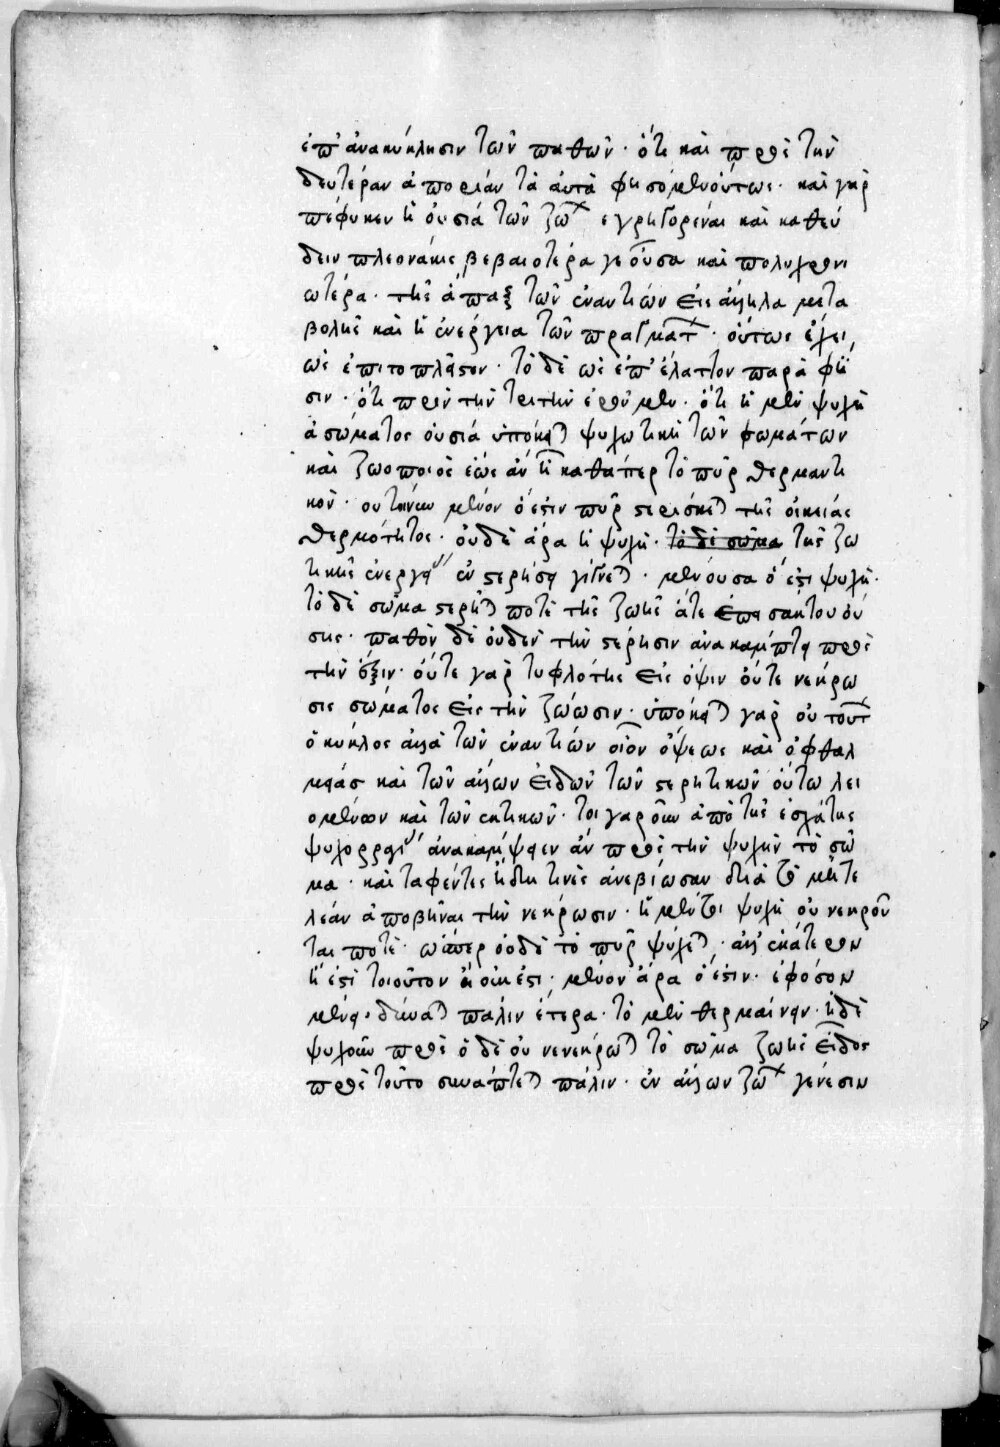 ἐπ' ἀνακύκλησιν τῶν παθῶν· ὅτι καὶ πρὸς τὴν
δευτέραν ἀπορίαν τὰ αὐτὰ φήσομεν οὕτως· καὶ γὰρ
πέφυκεν ἡ οὐσία τῶν ζώων ἐγρηγορέναι καὶ καθεύ
δειν πλεονάκις βεβαιοτέρα γε οὖσα καὶ πολυχρονι
ωτέρα· τῆς ἅπαξ τῶν ἐναντίων εἰς ἄλληλα μετα
βολῆς καὶ ἡ ἐνέργεια τῶν πραγμάτων· οὕτως ἔχει,
ὡς ἐπιτοπλεῖστον· τὸ δὲ ὡς ἐπ' ἔλαττον παρὰ φύ
σιν· ὅτι πρὸς τὴν τρίτην ἐροῦμεν· ὅτι ἡ μὲν ψυχὴ
ἀσώματος οὐσία ὑπόκειται ψυχωτικὴ τῶν σωμάτων
καὶ ζωοποιὸς ἕως ἂν ᾖ καθάπερ τὸ πῦρ θερμαντι
κόν· οὔτ μένον ὅ ἐστιν πῦρ στερίσκεται τῆς οἰκείας
θερμότητος· οὐδὲ ἄρα ἡ ψυχὴ· τὸ δὲ σῶμα τῆς ζω
τικῆς ἐνεργείας ἐν στερήσει γίγνεται· μένουσα ὅ ἐστι ψυχή·
τὸ δὲ σῶμα στερεῖται ποτὲ τῆς ζωῆς ἅτε ἐπεισακτου οὔ
σης· παθὸν δὲ οὐδὲν τὴν στέρησιν ἀνακάμπτει πρὸς
τὴν ἕξιν· οὔτε γὰρ τυφλότης εἰς ὄψιν οὔτε νέκρω
σις σώματος εἰς τὴν ζώωσιν· ὑπόκειται γὰρ οὐ τούτων
ὁ κύκλος ἀλλὰ τῶν ἐναντίων οἷον ὄψεως καὶ ὀφθαλ
μίας καὶ τῶν ἄλλων εἰδῶν τῶν στερητικῶν οὕτω λει
ομένων καὶ τῶν ἑκτικῶν· τοιγαροῦν ἀπὸ τῆς ἐσχάτης
ψυχορραγίας ἀνακάμψειεν ἂν πρὸς τὴν ψυχὴν τὸ σῶ
μα· καὶ ταφέντες ἤδη τινὲς ἀνεβίωσαν διὰ τὸ μὴ τε
λέαν ἀποβῆναι τὴν νέκρωσιν· ἡ μέντοι ψυχὴ οὐ νεκροῦ
ται ποτὲ· ὥσπερ οὐδὲ τὸ πῦρ ψύχεται· ἀλλ' ἑκάτερον
ἢ ἐστὶ τοιοῦτον ἢ οὐκ ἔστι· μένον ἄρα ὅ ἐστιν· ἐφόσον
μένει· δύναται πάλιν ἕτερα· τὸ μὲν θερμαίνειν· ἡ δὲ
ψυχοῦν πρὸς ὁ δὲ οὐ νενέκρωται τὸ σῶμα ζωῆς εἶδος
πρὸς τοῦτο συνάπτεται πάλιν· ἐν ἄλλων ζώων γένεσιν